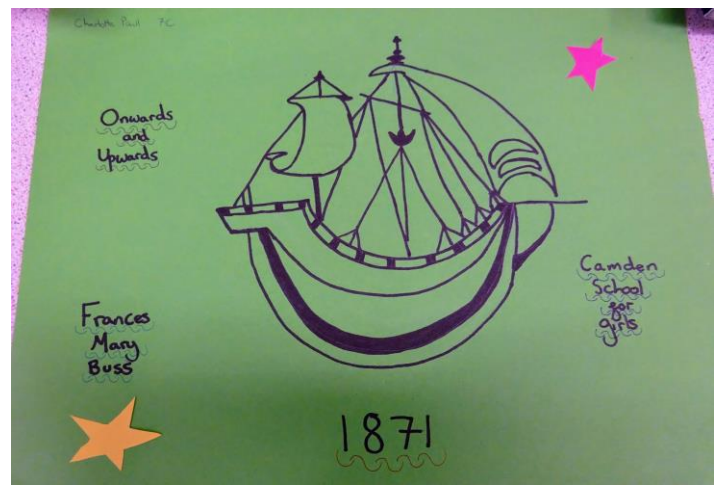 Charlotte Paull 7C
Onwards
and
Upwards
Camden
School
for
girls
Frances
Mary
Buss
1871